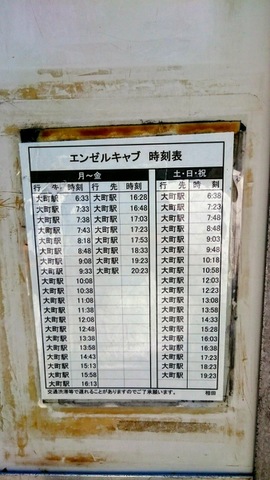 エンゼルキャブ 時刻表
月～金 土・日・祝
行 先 時刻 行 先 時刻 行 先 時刻
大町駅 6:33 大町駅 16:28 大町駅 6:38
大町駅 7:23 大町駅 16:48 大町駅 7:23
大町駅 7:38 大町駅 17:03 大町駅 7:48
大町駅 7:43 大町駅 17:23 大町駅 8:48
大町駅 8:18 大町駅 17:53 大町駅 9:03
大町駅 8:48 大町駅 18:33 大町駅 9:48
大町駅 9:08 大町駅 19:23 大町駅 10:18
大町駅 9:33 大町駅 20:23 大町駅 10:58
大町駅 10:08 大町駅 12:03
大町駅 10:38 大町駅 12:23
大町駅 11:08 大町駅 13:08
大町駅 11:38 大町駅 13:58
大町駅 12:08 大町駅 14:33
大町駅 12:48 大町駅 15:28
大町駅 13:38 大町駅 16:03
大町駅 13:58 大町駅 16:38
大町駅 14:43 大町駅 17:23
大町駅 15:13 大町駅 18:23
大町駅 15:58 大町駅 19:23
大町駅 16:13
交通渋滞等で遅れることがありますのでご了承願います。